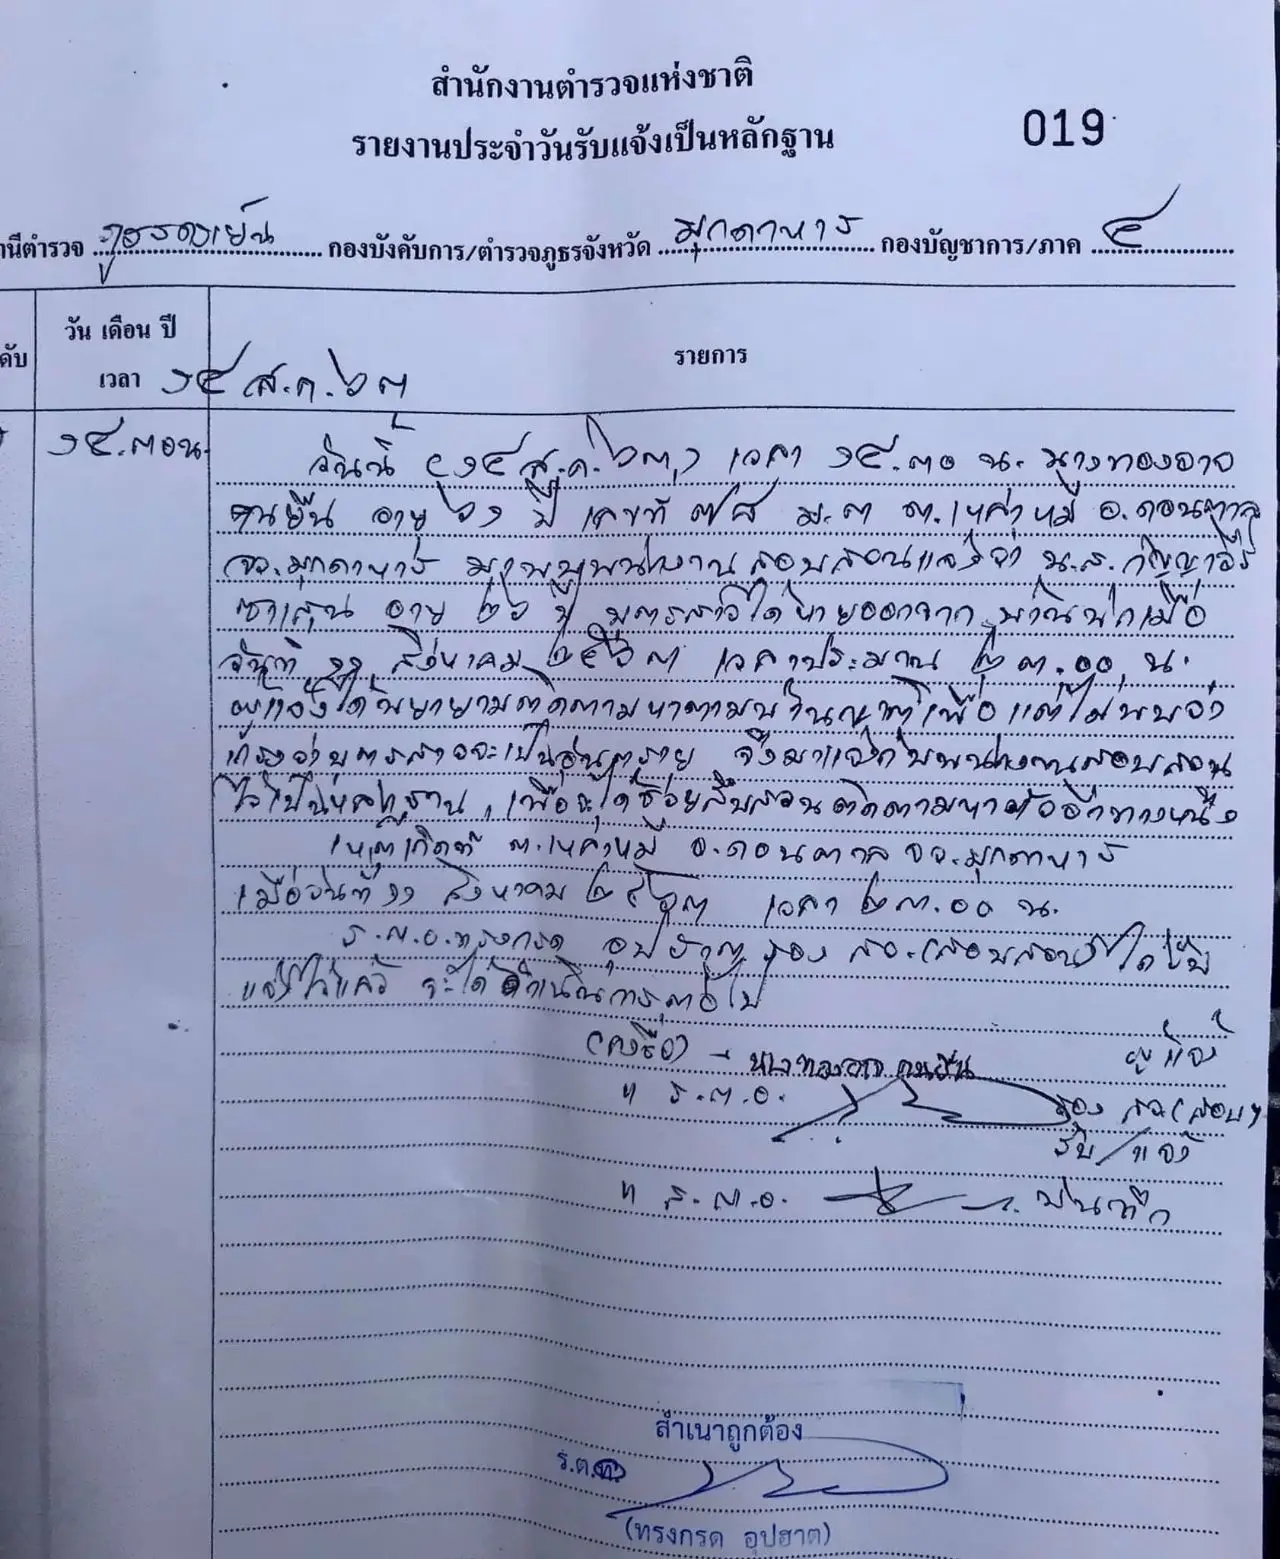 สำนักงานตำรวจแห่งชาติ
รายงานประจำวันรับแจ้งเป็นหลักฐาน 019
นีตำรวจ ภูธรดงเย็น กองบังคับการ/ตำรวจภูธรจังหวัด มุกดาหาร กองบัญชาการ/ภาค ๔
ดับ วัน เดือน ปี เวลา ๑๔ ส.ค. ๖๓ รายการ
๑๔.๓๐น. วันนี้ (๑๔ ส.ค. ๖๓) เวลา ๑๔.๓๐ น. นางทองอาจ
คนยืน อายุ ๖๑ ปี เลขที่ ๗๘ ม.๓ ต.เหล่าหมี อ.ดอนตาล
จว.มุกดาหาร มาพบพนักงานสอบสวนแจ้งว่า น.ส.กัญญาวีร์
อายุ ๒๖ ปี บุตรสาวได้หายออกจากบ้านพักเมื่อ
วันที่ ๑๑ สิงหาคม ๒๕๖๓ เวลาประมาณ ๒๓.๐๐ น.
ผู้แจ้งได้พยายามติดตามหาตามบ้านญาติเพื่อ แต่ไม่พบจึง
เกรงว่าบุตรสาวจะเป็นอันตราย จึงมาแจ้งกับพนักงานสอบสวน
ไว้เป็นหลักฐาน เพื่อจะได้ช่วยสืบสวนติดตามหาตัวอีกทางหนึ่ง
เหตุเกิดที่ ต.เหล่าหมี อ.ดอนตาล จว.มุกดาหาร
เมื่อวันที่ ๑๑ สิงหาคม ๒๕๖๓ เวลา ๒๓.๐๐ น.
ร.ต.อ.ทรงกรด อุปฮาต รอง สว.(สอบสวน)ฯ ได้รับ
แจ้งไว้แล้ว จะได้ดำเนินการต่อไป
(ลงชื่อ) - นางทองอาจ คนยืน ผู้แจ้ง
" ร.ต.อ. รอง สว.(สอบ)ฯ
รับ/แจ้ง
" ร.ต.อ. บันทึก
สำเนาถูกต้อง
ร.ต.อ.
(ทรงกรด อุปฮาต)